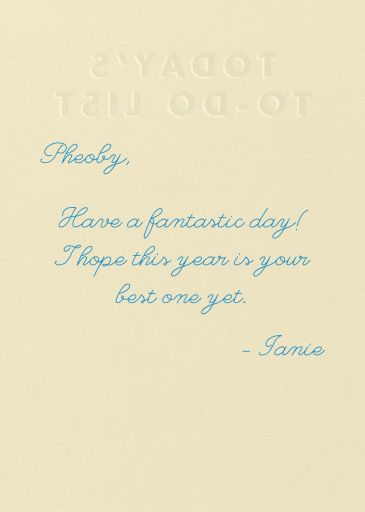 TODAY'S
TO-DO LIST
Pheoby,
Have a fantastic day!
I hope this year is your
best one yet.
- Janie